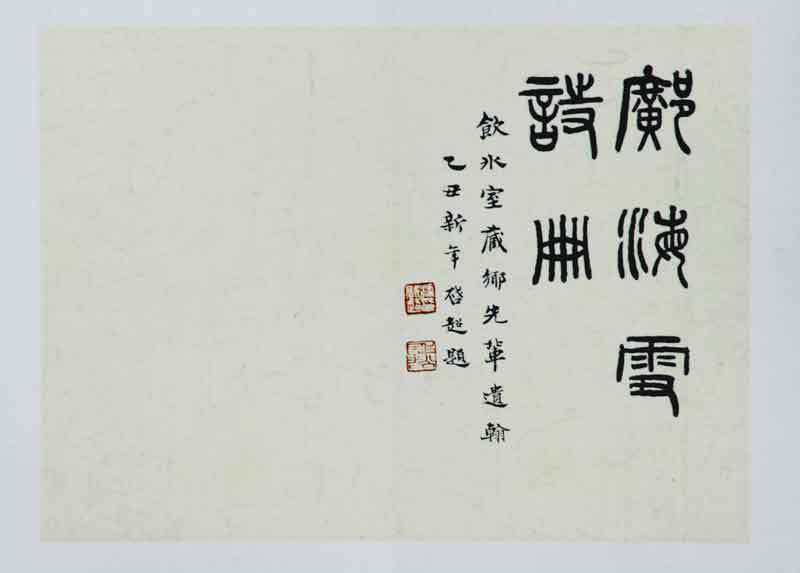 鄺海雪
詩冊
飲冰室藏鄉先輩遺翰
乙丑新年啓超題